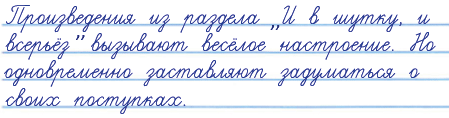 Произведения из раздела „И в шутку, и
всерьёз” вызывают весёлое настроение. Но
одновременно заставляют задуматься о
своих поступках.